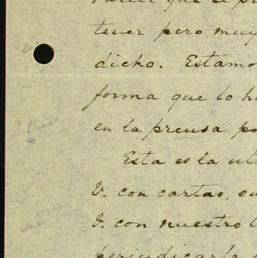 que el p
tener pero muy
dicho. Estamo
forma que lo h
en la prensa po
Esta es la ul
V. con cartas, en
V. con nuestro l
perjudicarle